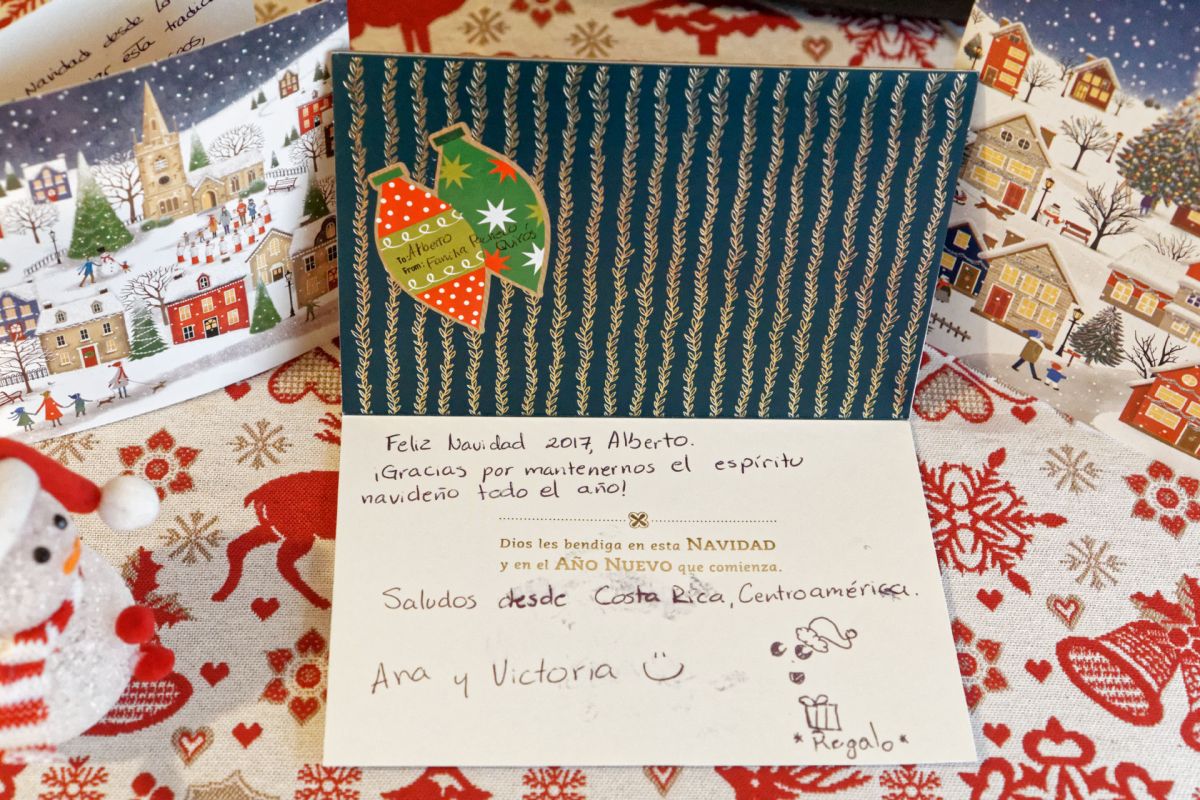 Navidad desde la
esta traduc
To: Alberto
From: Familia
Quirós
Feliz Navidad 2017, Alberto.
¡Gracias por mantenernos el espíritu
navideño todo el año!
Dios les bendiga en esta NAVIDAD
y en el AÑO NUEVO que comienza.
Saludos desde Costa Rica, Centroamérica.
Ana y Victoria
*Regalo*